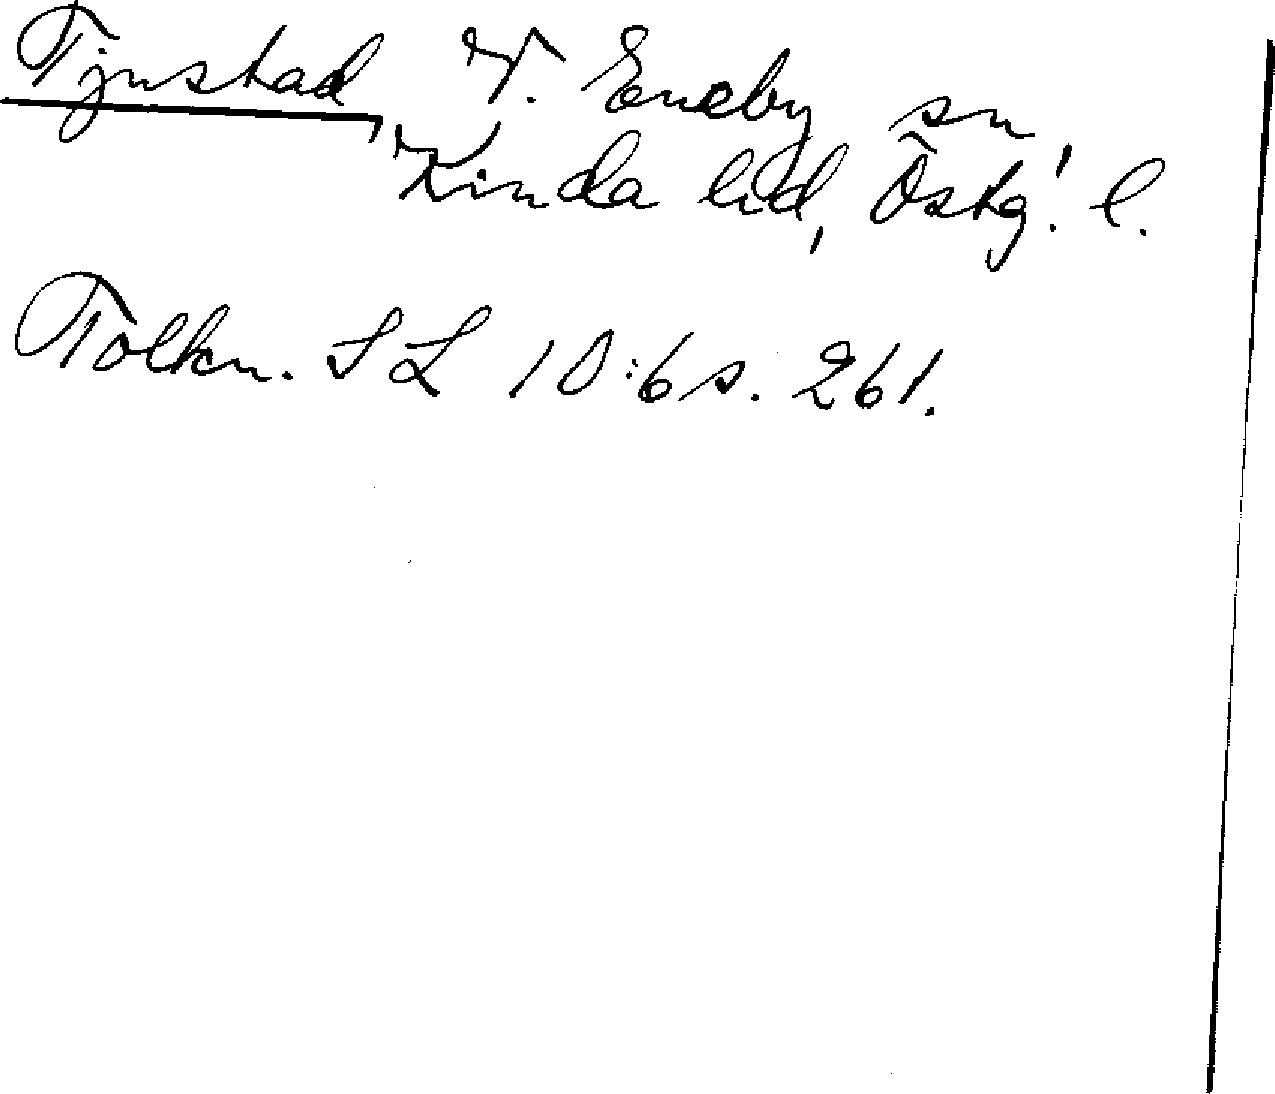 Tjustad, V. Eneby sn,
Kinda hd, Östg. l.
Tolkn. SL 10:6 s. 261.